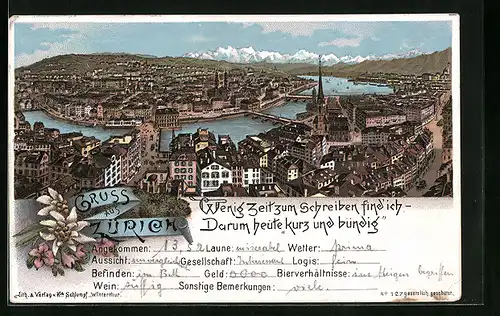 GRUSS
aus
ZÜRICH
"Wenig Zeit zum Schreiben find ich –
Darum heute kurz und bündig"
Angekommen: 13,52 Laune: miserabel Wetter: prima
Aussicht: Gesellschaft: Logis: fein
Befinden: im Bett Geld: 0000 Bierverhältnisse: im Steigen begriffen
Wein: süffig Sonstige Bemerkungen: viele.
Lith. & Verlag v. Hch. Schlumpf, Winterthur.
No 127 gesetzlich geschützt.